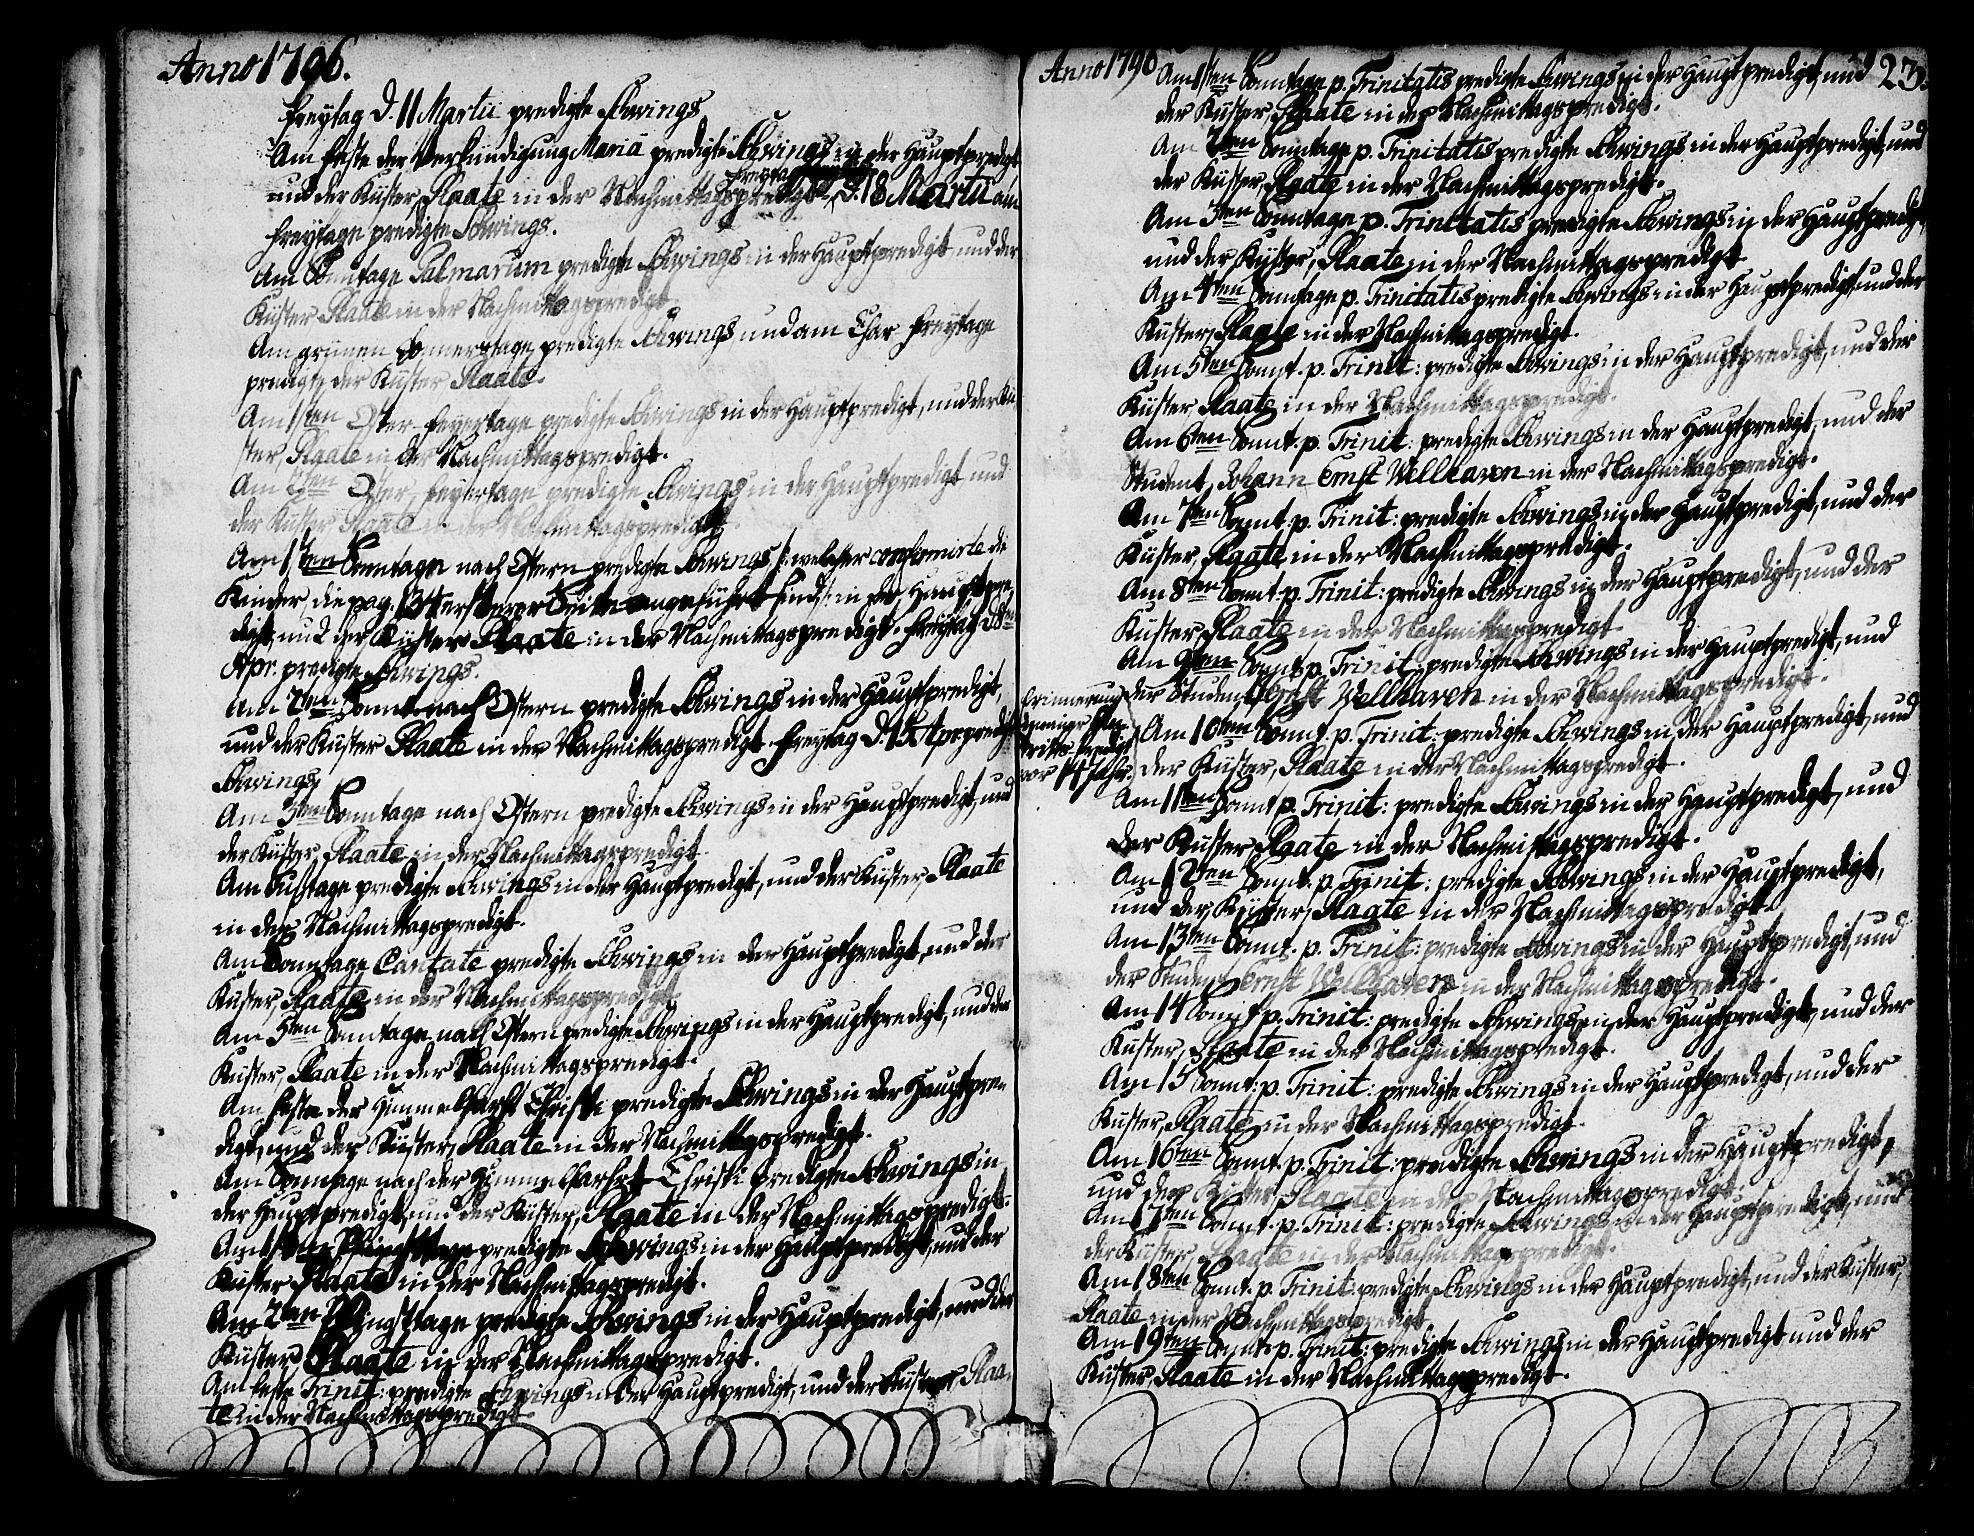 Anno 1796.
Freytag d. 11 Martii predigte Schwings
Am Feste der Verkündigung Mariä predigte Schwings in der Hauptpredigt
und der Küster Staate in der Nachmittagspredigt. d. 18 Martii am
Freytage predigte Schwings.
Am Sonntage Palmarum predigte Schwings in der Hauptpredigt, und der
Küster Staate in der Nachmittagspredigt.
Am grünen Donnerstage predigte Schwings und am Char Freytage
predigte der Küster Staate.
Am 1sten Oster-Feyertage predigte Schwings in der Hauptpredigt, und der Kü-
ster, Staate in der Nachmittagspredigt.
Am 2ten Oster, Feyertage predigte Schwings in der Hauptpredigt und
der Küster Staate in der Nachmittagspredigt.
Am 1sten Sonntage nach Ostern predigte Schwings /: welcher confirmirte die
Kinder, die pag. 134 ersterer Seite angeführt sind :/ in der Hauptpre-
digt, und der Küster Staate in der Nachmittagspredigt. Freytag d 8ten
Apr. predigte Schwings.
Am 2ten Sonnt nach Ostern predigte Schwings in der Hauptpredigt,
und der Küster Staate in der Nachmittagspredigt. Freytag d. 15 Apr predigte
Schwings.
Am 3ten Sonntage nach Ostern predigte Schwings in der Hauptpredigt, und
der Küster, Staate in der Nachmittagspredigt
Am Bußtage predigte Schwings in der Hauptpredigt, und der Küster, Staate
in der Nachmittagspredigt.
Am Sonntage Cantate predigte Schwings in der Hauptpredigt, und der
Küster, Staate in der Nachmittagspredigt.
Am 5ten Sonntage nach Ostern predigte Schwings in der Hauptpredigt, und der
Küster, Staate in der Nachmittagspredigt.
Am Feste der Himmelfahrt Christi predigte Schwings in der Hauptpre-
digt, und der Küster, Staate in der Nachmittagspredigt.
Am Sonntage nach der Himmelfarht Christi predigte Schwings in
der Hauptpredigt, und der Küster, Staate in der Nachmittagspredigt.
Am 1sten Pfingsttage predigte Schwings in der Hauptpredigt, und der
Küster Staate in der Nachmittagspredigt.
Am 2ten Pfingsttage predigte Schwings in der Hauptpredigt, und der
Küster Staate in der Nachmittagspredigt.
Am Feste Trinit: predigte Schwings in der Hauptpredigt, und der Küster Staa-
te in der Nachmittagspredigt
Anno 1796
23.
Am 1sten Sonntage p. Trinitatis predigte Schwings in der Hauptpredigt, und
der Küster, Staate in der Nachmittagspredigt.
Am 2ten Sonntage p. Trinitatis predigte Schwings in der Hauptpredigt, und
der Küster, Staate in der Nachmittagspredigt.
Am 3ten Sonntage p. Trinitatis predigte Schwings in der Hauptpredigt,
und der Küster, Staate in der Nachmittagspredigt
Am 4ten Sonntage p. Trinitatis predigte Schwings in der Hauptpredigt, und der
Küster, Staate in der Nachmittagspredigt.
Am 5ten Sonnt. p. Trinit: predigte Schwings in der Hauptpredigt, und der
Küster Staate in der Nachmittagspredigt.
Am 6ten Sonnt. p. Trinit: predigte Schwings in der Hauptpredigt, und der
Student, Johann Ernst Wellhaven in der Nachmittagspredigt.
Am 7ten Sonnt. p. Trinit: predigte Schwings in der Hauptpredigt, und der
Küster, Staate in der Nachmittagspredigt.
Am 8ten Sonnt. p. Trinit: predigte Schwings in der Hauptpredigt, und der
Küster, Staate in der Nachmittagspredigt
Am 9ten Sonnt. p. Trinit: predigte Schwings in der Hauptpredigt, und
der Student Ernst Wellhaven in der Nachmittagspredigt.
Erinnerung
vor 14 Jahr.
Am 10ten Sonnt. p. Trinit: predigte Schwings in der Hauptpredigt, und
der Küster, Staate in der Nachmittagspredigt.
Am 11ten Sonnt p. Trinit: predigte Schwings in der Hauptpredigt, und
der Küster Staate in der Nachmittagspredigt.
Am 12ten Sonnt. p. Trinit: predigte Schwings in der Hauptpredigt,
und der Küster, Staate in der Nachmittagspredigt.
Am 13ten Sonnt. p. Trinit: predigte Schwings in der Hauptpredigt, und
der Student Ernst Wellhaven in der Nachmittagspredigt.
Am 14 Sonnt p. Trinit: predigte Schwings in der Hauptpredigt, und der
Küster, Staate in der Nachmittagspredigt.
Am 15 Sonnt: p. Trinit: predigte Schwings in der Hauptpredigt, und der
Küster, Staate in der Nachmittagspredigt.
Am 16ten Sonnt. p. Trinit: predigte Schwings in der Hauptpredigt,
und der Küster, Staate in der Nachmittagspredigt.
Am 17ten Sonnt. p. Trinit: predigte Schwings in der Hauptpredigt, und
der Küster, Staate in der Nachmittagspredigt.
Am 18ten Sonnt. p. Trinit: predigte Schwings in der Hauptpredigt, und der Küster,
Staate in der Nachmittagspredigt
Am 19ten Sonnt. p. Trinit: predigte Schwings in der Hauptpredigt und der
Küster, Staate in der Nachmittagspredigt.